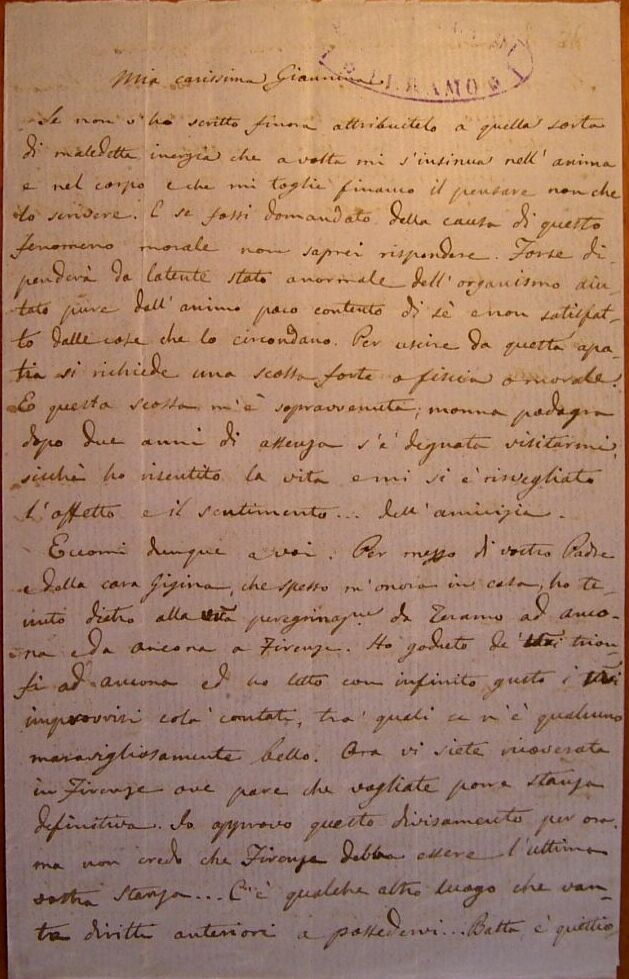 TERAMO
Mia carissima Giannina
Se non v'ho scritto finora attribuitelo a quella sorta
di maledetta inerzia che a volta mi s'insinua nell'anima
e nel corpo e che mi toglie financo il pensare non che
lo scrivere. E se fossi domandato della causa di questo
fenomeno morale non saprei rispondere. Forse di-
penderà da latente stato anormale dell'organismo aiu-
tato pure dall'animo poco contento di sè e non satisfat-
to dalle cose che lo circondano. Per uscire da questa apa-
tia si richiede una scossa forte o fisica o morale.
E questa scossa m'è sopravvenuta; monna podagra
dopo due anni di assenza s'è degnata visitarmi,
sicchè ho risentito la vita e mi si è risvegliato
l'affetto e il sentimento... dell'amicizia.
Eccomi dunque a voi. Per mezzo di vostro Padre
e dalla cara Gigina, che spesso m'onora in casa, ho te-
nuto dietro alla vra peregrinaz.ne da Teramo ad Anco-
na e da Ancona a Firenze. Ho goduto de' vri trion-
fi ad Ancona ed ho letto con infinito gusto i vri
improvvisi colà cantati, tra' quali ce n'è qualcuno
maravigliosamente bello. Ora vi siete ricoverata
in Firenze ove pare che vogliate porre stanza
definitiva. Io approvo questo divisamento per ora,
ma non credo che Firenze debba essere l'ultima
vostra stanza... C'è qualche altro luogo che van-
ta diritti anteriori a possedervi... Basta, è